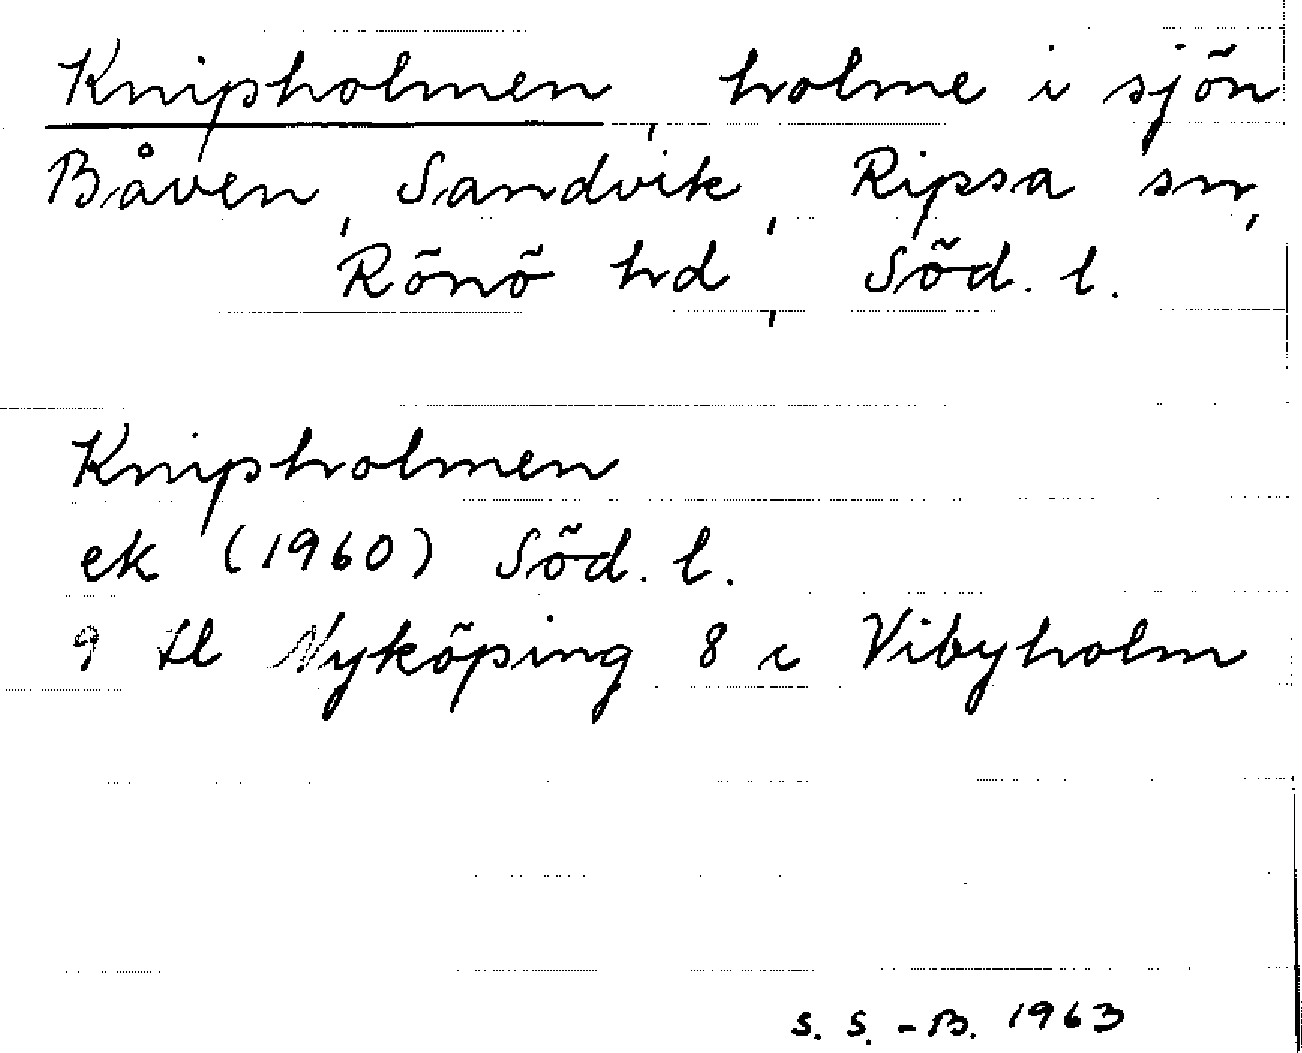 Knipholmen, holme i sjön
Båven, Sandvik, Ripsa sn,
Rönö hd, Söd. l.
Knipholmen
ek (1960) Söd. l.
9 H l Nyköping 8 c Vibyholm
S. S. - B. 1963